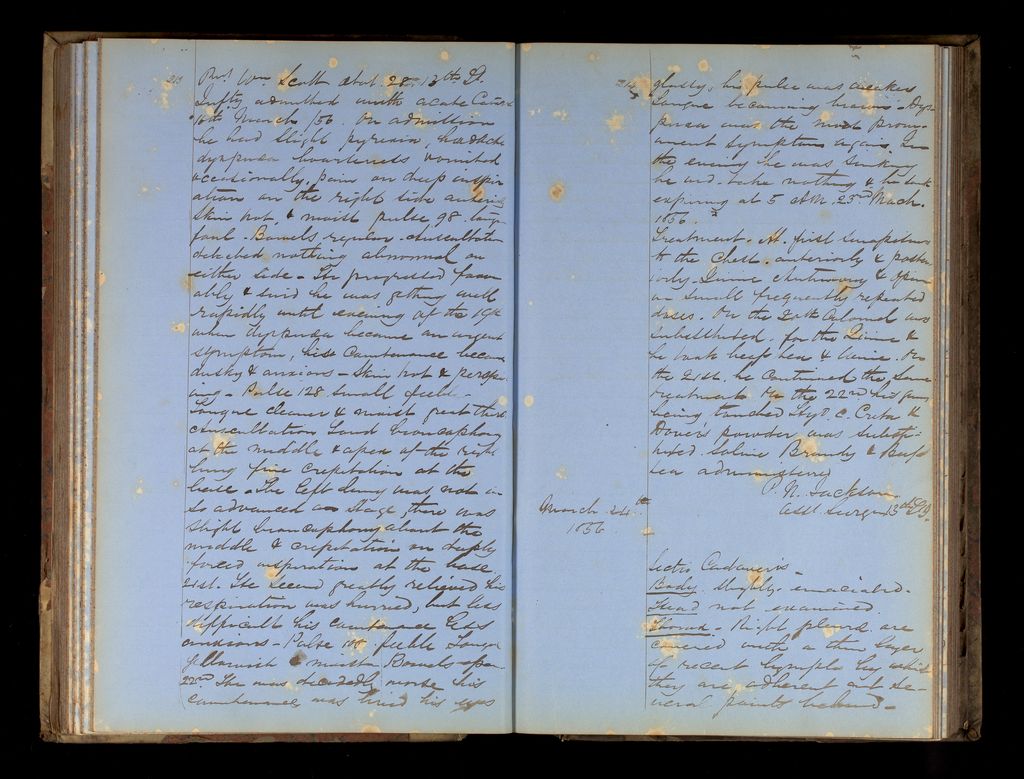 213
Pvt. Wm. Scott aetat. 28. 13th Lt.
Infty admitted with acute
16th March /56. On admission
he had slight pyrexia, headache
dyspnoea hoarseness vomited
occasionally, pain on deep inspir
ation on the right side
skin hot, & moist pulse 98. tongue
foul. Bowels regular. Auscultation
detected nothing abnormal on
either side - He progressed favor
ably & said he was getting well
rapidly until evening of the 19th
when Dyspnoea became an urgent
symptom, his countenance became
dusky & anxious - skin hot & perspir
ing - Pulse 128 small feeble -
Tongue cleaner & moist great thirst
Auscultation found broncophony
at the middle & apex of the right
lung fine crepitation at the
base - The left lung was not in
so advanced a stage, there was
slight broncophony about the
middle & crepitation on deeply
forced inspiration at the base
21st. He seemed greatly relieved his
respiration was hurried, but less
difficult his countenance less
anxious - Pulse feeble Tongue
yellowish & moist Bowels open
22nd He was decidedly worse his
countenance was livid his eyes
214
glassy, his pulse was weaker
Tongue becoming brown - Dys
pnoea was the most prom-
inent symptom again. In
the evening he was sinking
he wd. take nothing & he sank
expiring at 5 AM. 23rd March.
1856.
Treatment - At first sinapisms
to the chest anteriorly & poster
iorly & opium
in small frequently repeated
doses. On the 20th Calomel was
substituted for the &
he took beef tea & wine. On
the 21st. he continued the same
treatment On the 22nd his gums
being touched Hyd. c. Creta &
Dover's powder was substi-
tuted Saline Brandy & Beef
tea administered
P. N. Jackson
Asst. Surgeon 13th
March 24th
1856
Sectio Cadaveris -
Body. Slightly emaciated.
Head not examined
Thorax - Right pleura are
covered with a thin layer
of recent lymph by which
they are adherent at se-
veral points behind -